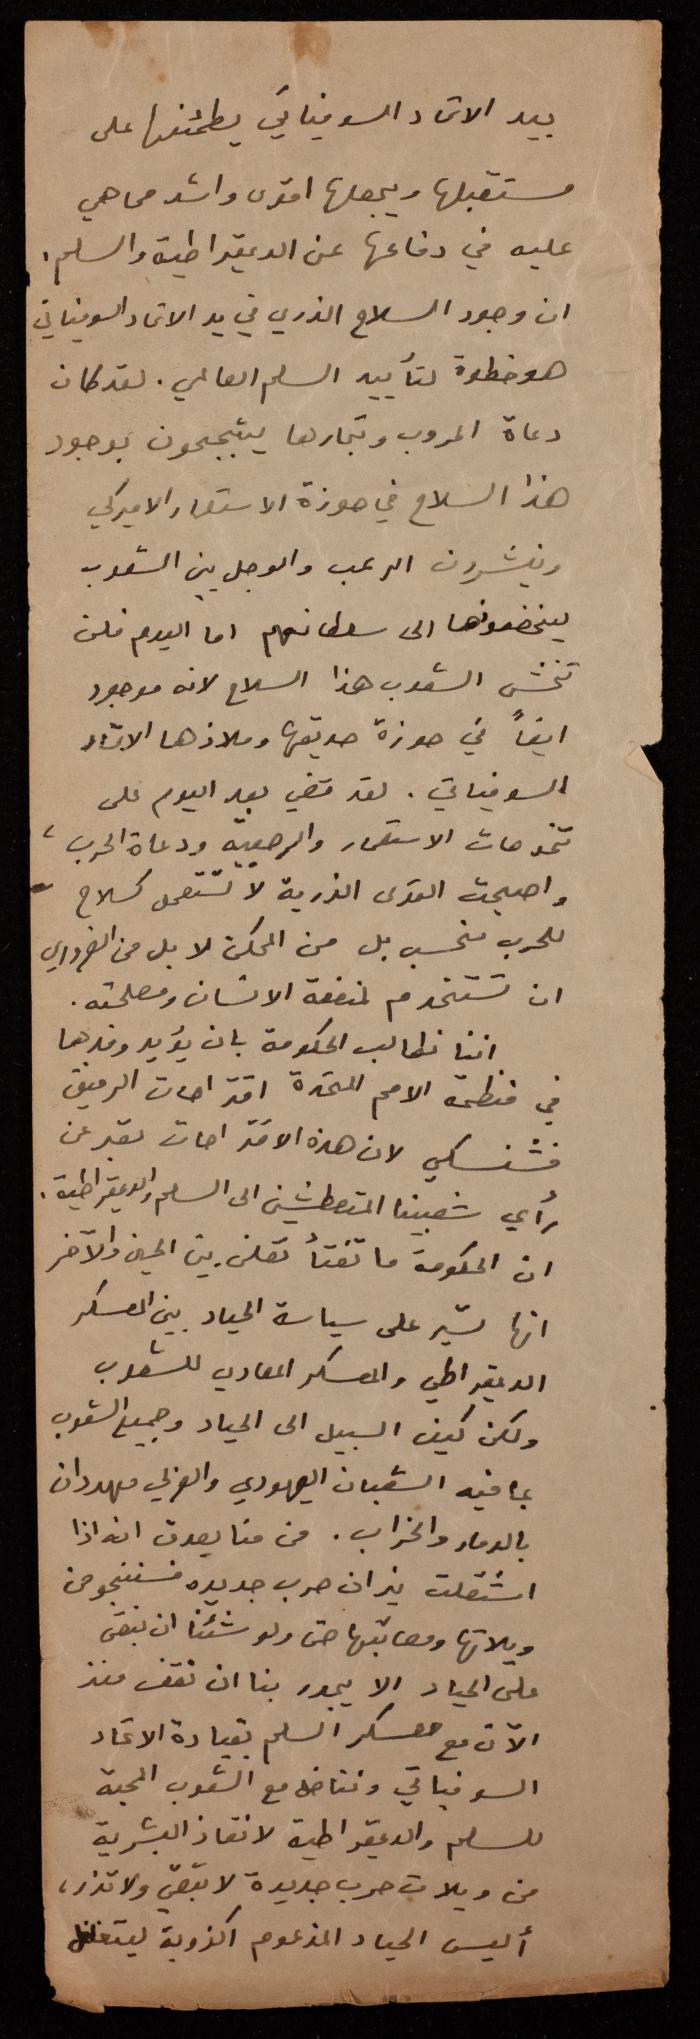 بيد الاتحاد السوفياتي يطمئنها على
مستقبلها ويجعلها اقوى واشد مما هي
عليه في دفاعها عن الديمقراطية والسلم.
ان وجود السلاح الذري في يد الاتحاد السوفياتي
هو خطوة لتأييد السلم العالمي. لقد كان
دعاة الحروب وتجارها يتبجحون بوجود
هذا السلاح في حوزة الاستعمار الاميركي
وينشرون الرعب والوجل بين الشعوب
ليخضعونها الى سلطانهم اما اليوم فلن
تخشى الشعوب هذا السلاح لانه موجود
ايضاً في حوزة صديقها وملاذها الاتحاد
السوفياتي. لقد قضي بعد اليوم على
تخرصات الاستعمار والرجعية ودعاة الحرب،
واصبحت القوى الذرية لا تستعمل كسلاح
للحرب فحسب بل من الممكن لا بل من الضروري
ان تستخدم لمنفعة الانسان ومصلحته.
اننا نطالب الحكومة بان يؤيد وفدها
في منظمة الامم المتحدة اقتراحات الرفيق
فشنسكي لان هذه الاقتراحات تعبر عن
رأي شعبينا المتعطشين الى السلم والديمقراطية.
ان الحكومة ما تفتأ تعلن بين الحين والآخر
انها تسير على سياسة الحياد بين المعسكر
الديمقراطي والمعسكر المعادي للشعوب
ولكن كيف السبيل الى الحياد وجميع الشعوب
بما فيه الشعبان اليهودي والعربي مهددان
بالدمار والخراب. من منا يصدق انه اذا
اشتعلت نيران حرب جديده فسننجو من
ويلاتها ومصائبها حتى ولو شئنا ان نبقى
على الحياد الا يجدر بنا ان نقف منذ
الآن مع معسكر السلم بقيادة الاتحاد
السوفياتي ونناضل مع الشعوب المحبة
للسلم والديمقراطية لانقاذ البشرية
من ويلات حرب جديدة لا تبقي ولا تذر،
أليس الحياد المزعوم اكذوبة